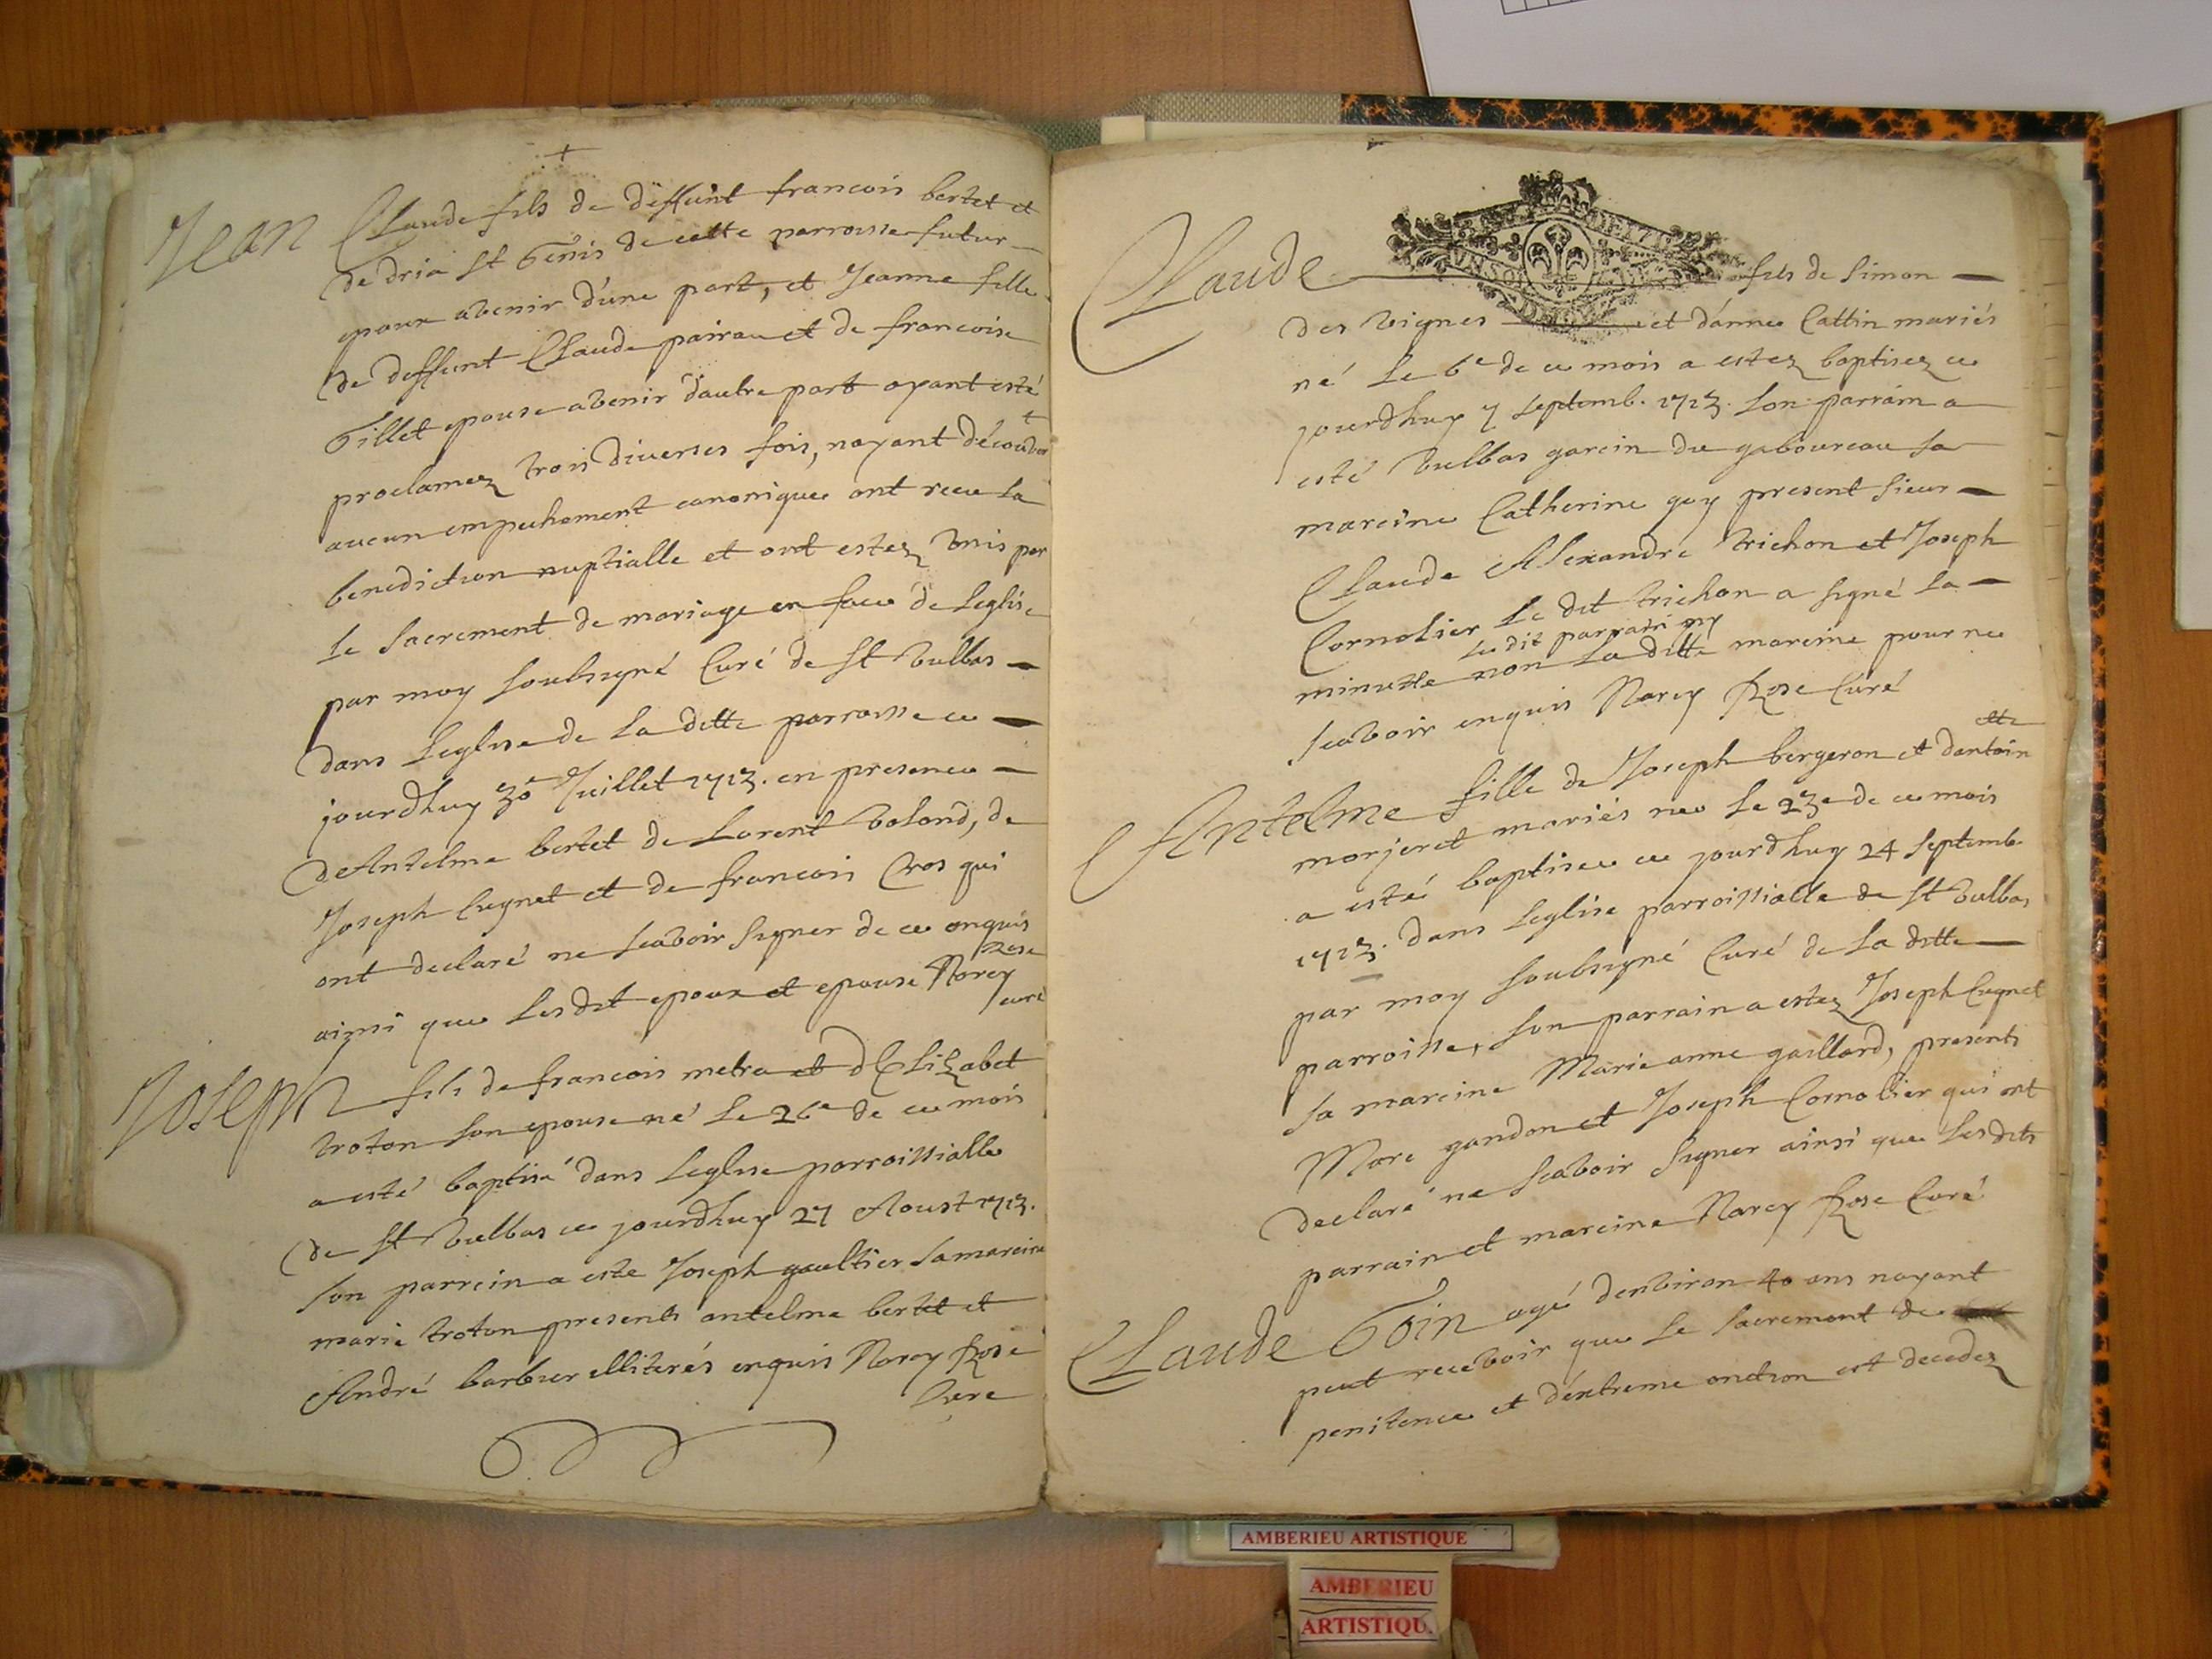 Jean Claude fils de deffunt francois bertet et
de dria St Genis de cette parroisse futur
epoux avenir d'une part, et Jeanne fille
de deffunt Claude pairau et de francoise
Gillet epouse avenir d'autre part ayant esté
proclamez trois diverses fois, nayant découvert
aucun empechement canonique ont receu la
benediction nuptialle et ont estez unis par
le Sacrement de mariage en face de Leglise
par moy soubsigné Curé de St Vulbas
dans Leglise de La ditte parroisse ce
jourdhuy 30e Juillet 1713. en presence
de Antelme bertet de Lorent bolond, de
Joseph Cugnet et de francois Cros qui
ont declaré ne scavoir signer de ce enquis
ainsi que Lesdit epoux et epouse Narcy Rose
curé
Joseph fils de francois metra et d'Elizabet
troton son epouse né Le 26e de ce mois
a esté baptisé dans Leglise parroissialle
de St Vulbas ce jourdhuy 27 Aoust 1713.
son parrein a este Joseph gaultier sa mareine
marie troton presents antelme bertet et
André barbier illiterés enquis Narcy Rose
Cure
Claude fils de Simon
des vignes et d'anne Cattin mariés
né Le 6e de ce mois a estez baptisez ce
jourdhuy 7 septemb. 1713. son parrain a
esté Vulbas garcin du gaboureau sa
mareine Catherine guy present sieur
Claude Alexandre trichon et Joseph
Cornolier Le dit trichon a signé La
Le dit parrain ny
minutte non La ditte mareine pour ne
scavoir enquis Narcy Rose Curé
ette
Antelme fille de Joseph bergeron et dantoin
morjeret mariés nee Le 23e de ce mois
a esté baptisee ce jourdhuy 24 septemb.
1713. dans Leglise parroissialle de St Vulbas
par moy soubsigné Curé de La ditte
parroisse, son parrain a estez Joseph Cugnet
sa mareine Marie anne gaillard, presents
Marc gandon et Joseph Cornolier qui ont
declaré ne scavoir signer ainsi que Lesdits
parrain et mareine Narcy Rose Curé
Claude Goin agé denviron 40 ans nayant
peut recevoir que Le Sacrement de
penitence et d'extreme onction est decedez
AMBERIEU ARTISTIQUE
AMBERIEU
ARTISTIQU